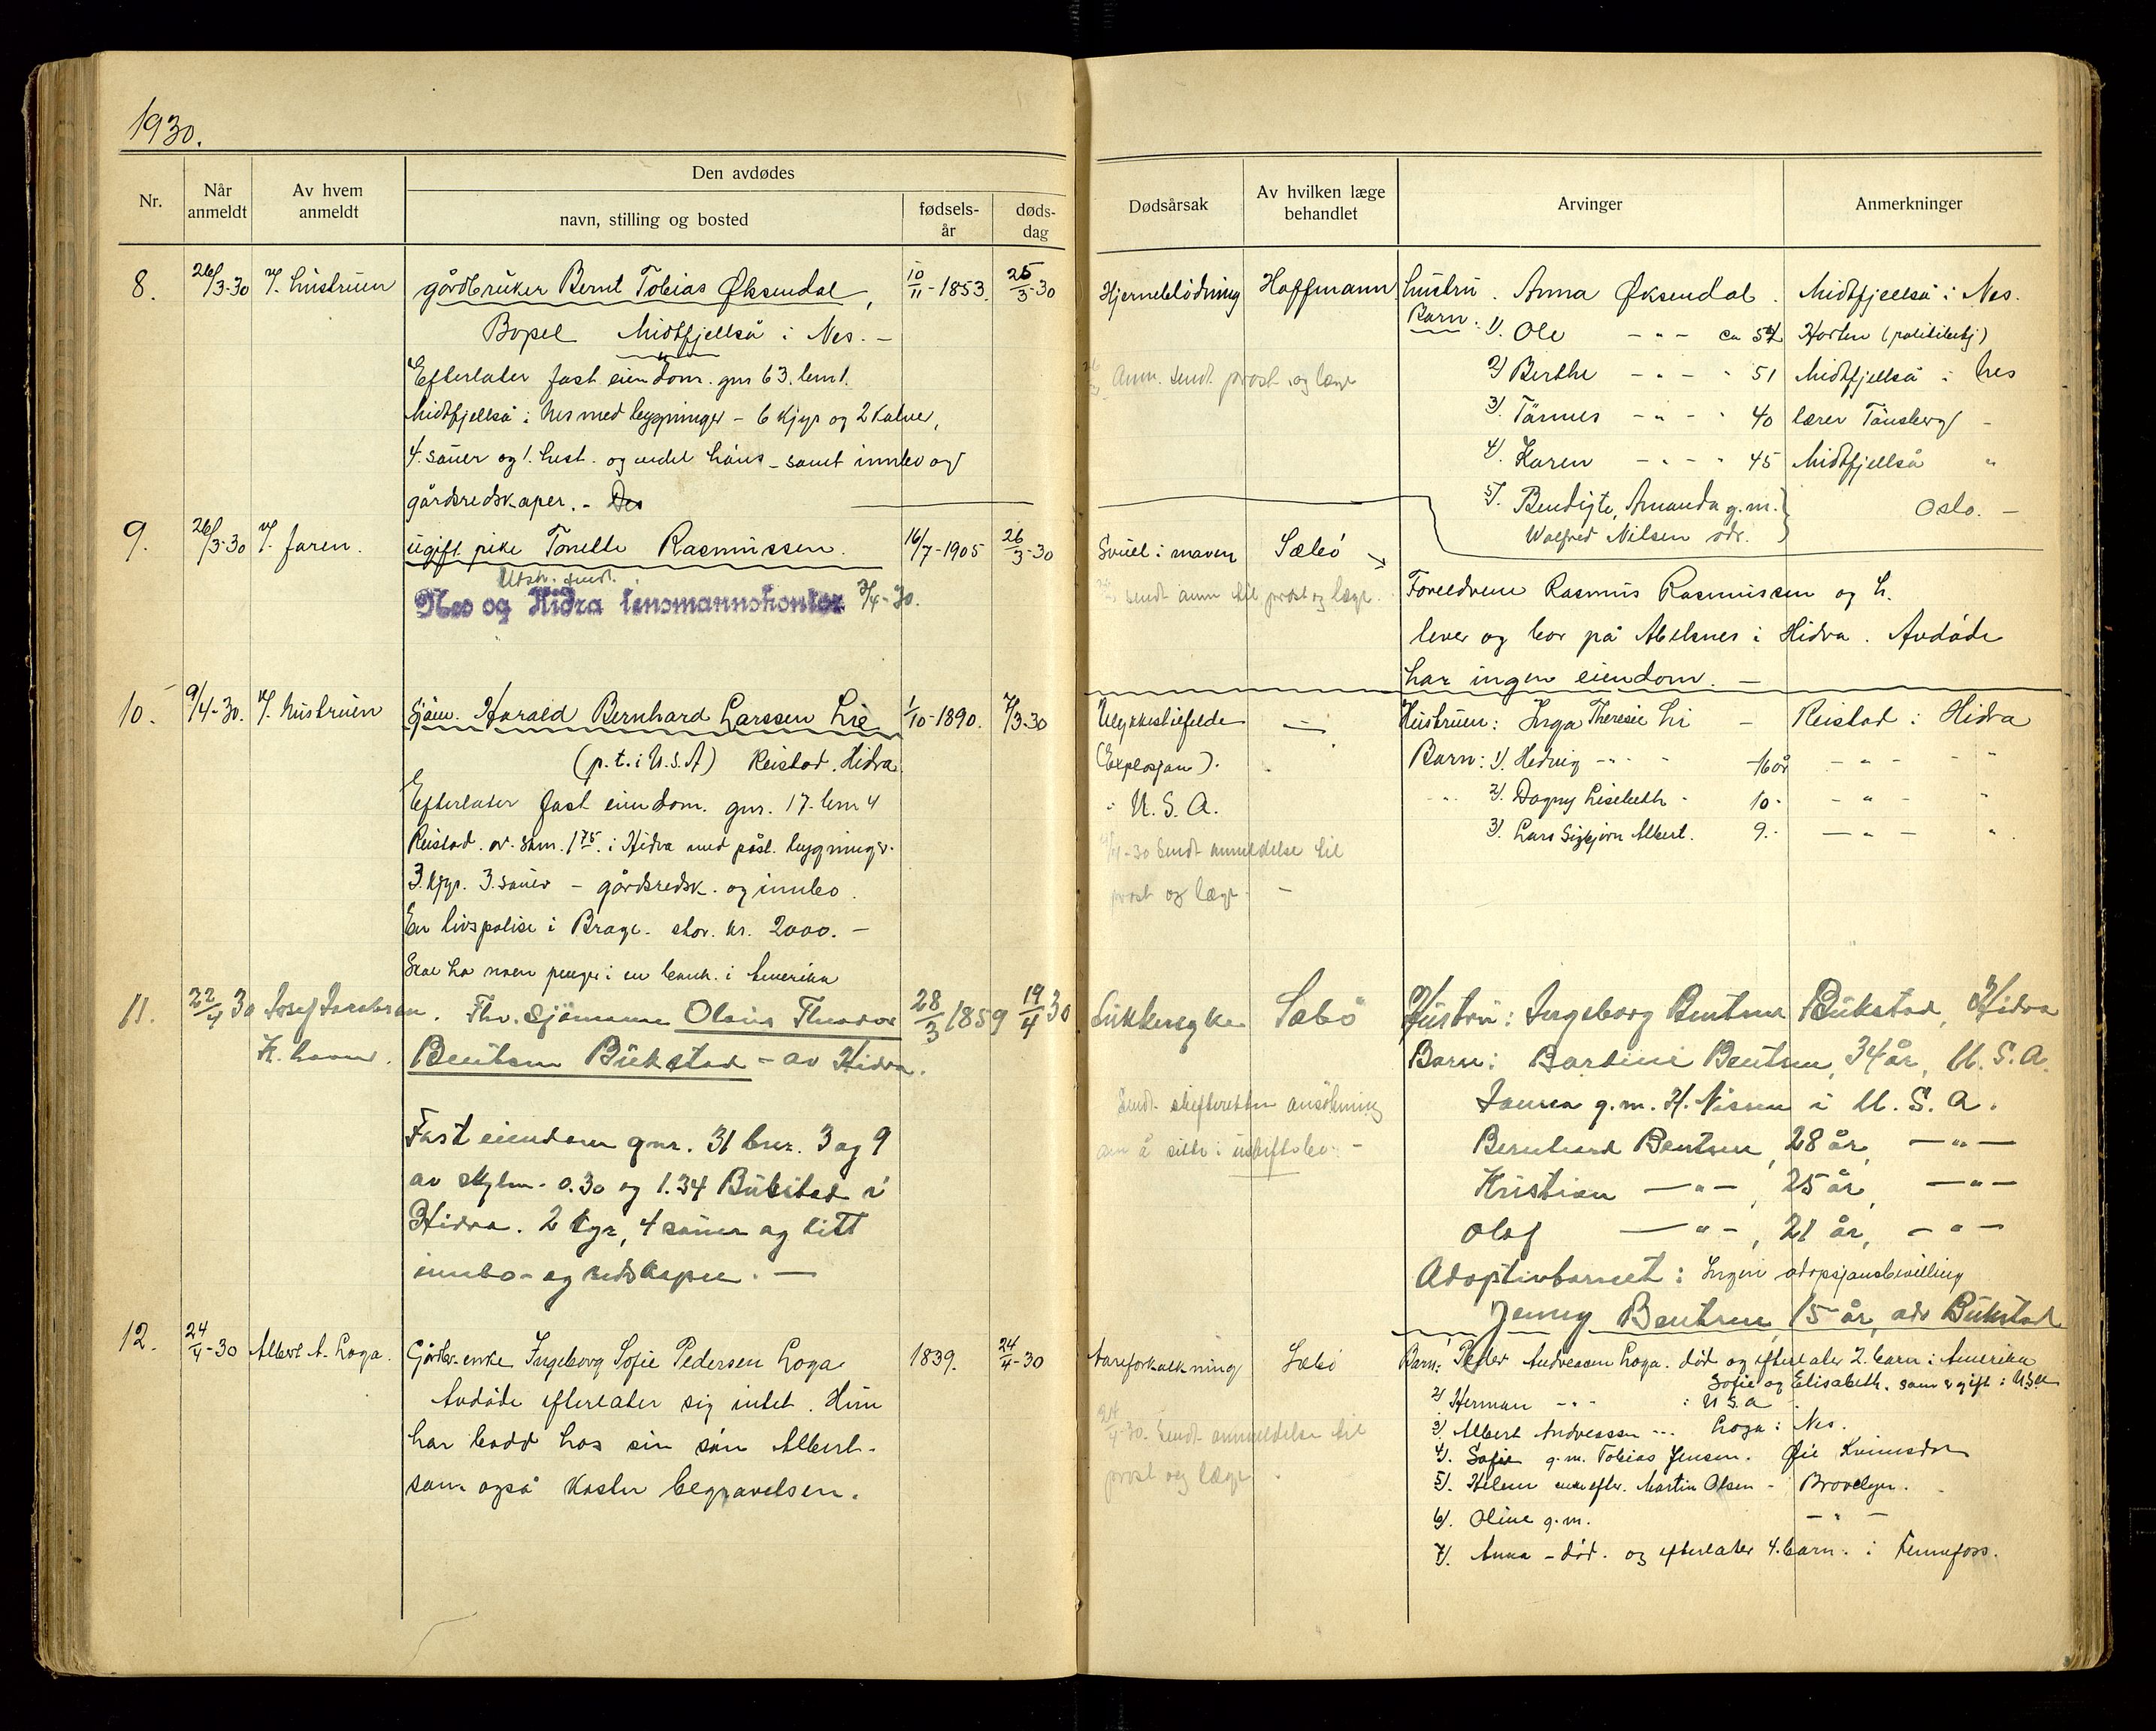 1930.
Nr.
Når anmeldt
Av hvem anmeldt
Den avdødes
navn, stilling og bosted
fødsels-år
døds-dag
Dødsårsak
Av hvilken læge behandlet
Arvinger
Anmerkninger
8. 26/3-30 v/. hustruen gårdbruker Bernt Tobias Øksendal, 10/11-1853. 25/3-30 Hjerneblödning Hoffmann
Bopel Midtfjellså i Nes. -
Efterlater fast eiendom. gnr 63. bnr 1.
Midtfjellså i Nes med bygninger - 6 kjyr og 2 kalver,
4. sauer og 1. hest. og endel höns - samt innbo og
gårdsredskaper. -
Anm. sendt prost og læge
hustru. Anna Øksendal. Midtfjellså i Nes.
Barn: 1). Ole - " - ca 54 Horten (politibetj)
2) Berthe - " - " 51 Midtfjellså i Nes
3). Tönnes - " - " 40 lærer Tönsberg -
4). Karen - " - " 45 Midtfjellså "
5). Bendigte, Amanda g.m. Oslo. -
Walfred Nilsen sdr.
9. 26/3-30 v/. faren. ugift pike Tonette Rasmussen. 16/7-1905 26/3-30 Svulst i maven Sæbö
Utskr. sendt.
Nes og Hidra lensmannskontor 3/4-30.
sendt anm til prost og læge.
Foreldrene Rasmus Rasmussen og h.
lever og bor på Abelsnes i Hidra. Avdöde
har ingen eiendom. -
10. 9/4-30. v/. hustruen Sjöm. Harald Bernhard Larssen Lie 1/10-1890. 7/3-30 Ulykkestilfelde -
(p.t. i U.S.A) Reistad. Hidra
Efterlater fast eiendom. gnr. 17. bnr 4
Reistad. av skm. 1 75. i Hidra med påst. bygninger.
3. kjyr. 3. sauer - gårdsredsk. og innbo.
En livspolise i Brage. stor. kr. 2000. -
Skal ha noen penger i en bank. i Amerika
(Explosjon).
i U.S.A.
9/4-30 Sendt anmeldelse til
prost og læge. -
Hustruen: Inga Theresie Li - Reistad i Hidra
Barn: 1). Hedvig - " - 16 år - " - "
2). Dagny Lisebeth - 10 - - " - "
3). Lars Sigbjörn Albert. 9. - - " - "
11. 22/4 30 Josef Jacobsen. Fhv. sjömann Olaus Theodor 28/3 1859 19/4 30 Sukkersyke Sæbö
K. havn. Bentsen Bukstad - av Hidra.
Fast eiendom gnr. 31 bnr. 3 og 9
av skylm. 0.30 og 1.34 Bukstad i
Hidra. 2 kyr, 4 sauer og litt
innbo- og redskaper. -
Sendt skifteretten ansökning
om å sitte i uskiftebo. -
Hustru: Ingeborg Bentsen Bukstad, Hidra
Barn: Bardine Bentsen, 34 år, U.S.A.
Laura g.m. H. Nissen i U.S.A.
Bernhard Bentsen, 28 år, - " -
Kristian - " -, 25 år, - " -
Olaf - " -, 21 år, - " -
Adoptivbarnet: Ingen adopsjonsbevilling
Jenny Bentsen, 15 år, adr Bukstad
12. 24/4-30 Albert A. Loga. Gårdbr.enke Ingeborg Sofie Pedersen Loga 1839. 24/4-30 Aareforkalkning Sæbö
Avdöde efterlater sig intet. Hun
har bodd hos sin sön Albert.
som også koster begravelsen.
24/4-30. Sendt anmeldelse til
prost og læge.
Barn: 1 Peder Andreassen Loga. död og efterlater 2. barn i Amerika
Sofie og Elisabeth. som er gift i USA
2) Herman - " - i USA
3) Albert Andreassen - " - Loga i Nes.
4). Sofie g.m. Tobias Jensen. Öie Kvinesdal
5). Helene enke efter. Martin Olsen - Brooklyn.
6). Oline g.m. - " -
7). Anna - död. og efterlater 4. barn. i Kennefoss.